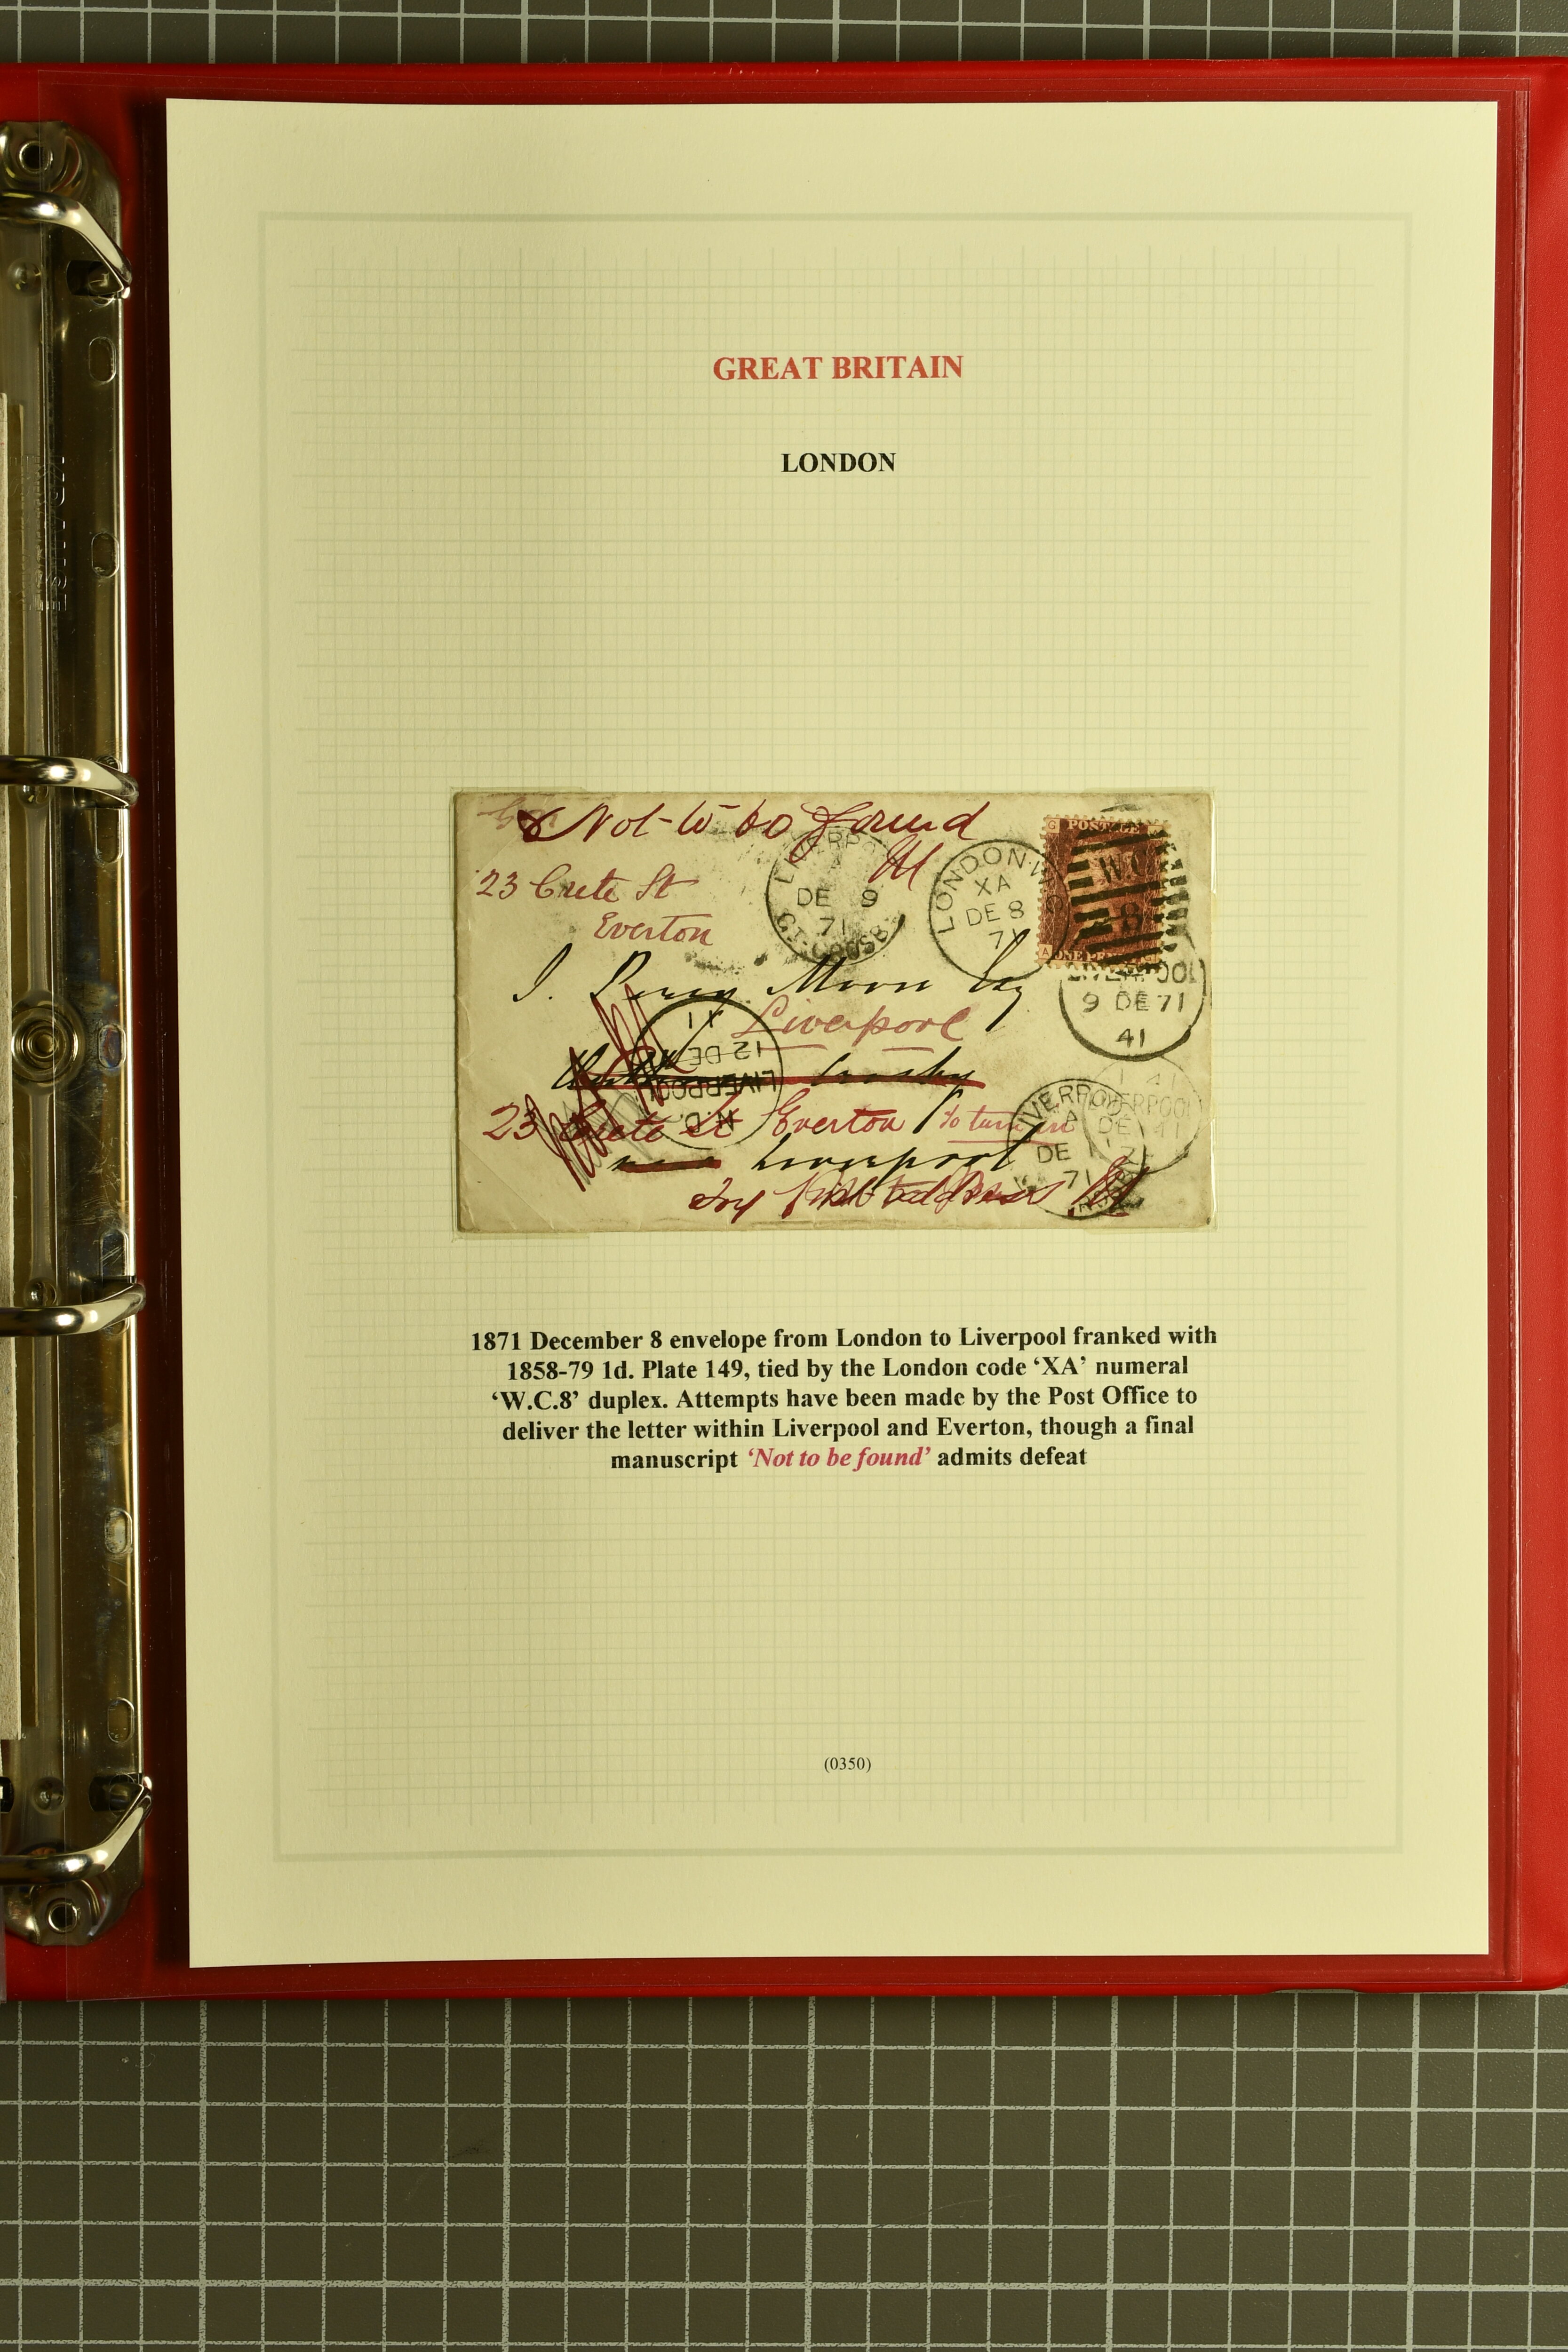 GREAT BRITAIN
LONDON
Not to be found
23 Crete St
Everton
LIVERPOOL
DE 9
71
GT. CROSBY
LONDON W.C
XA
DE 8
71
POSTAGE
W C
8
ONE PENNY
LIVERPOOL
9 DE 71
41
J. Percy Moon Esq
Liverpool
Crosby
23 Crete St Everton to turn in
Liverpool
try first address
N.D.
LIVERPOOL
12 DE 71
LIVERPOOL
A
DE
71
1871 December 8 envelope from London to Liverpool franked with
1858-79 1d. Plate 149, tied by the London code ‘XA’ numeral
‘W.C.8’ duplex. Attempts have been made by the Post Office to
deliver the letter within Liverpool and Everton, though a final
manuscript ‘Not to be found’ admits defeat
(0350)